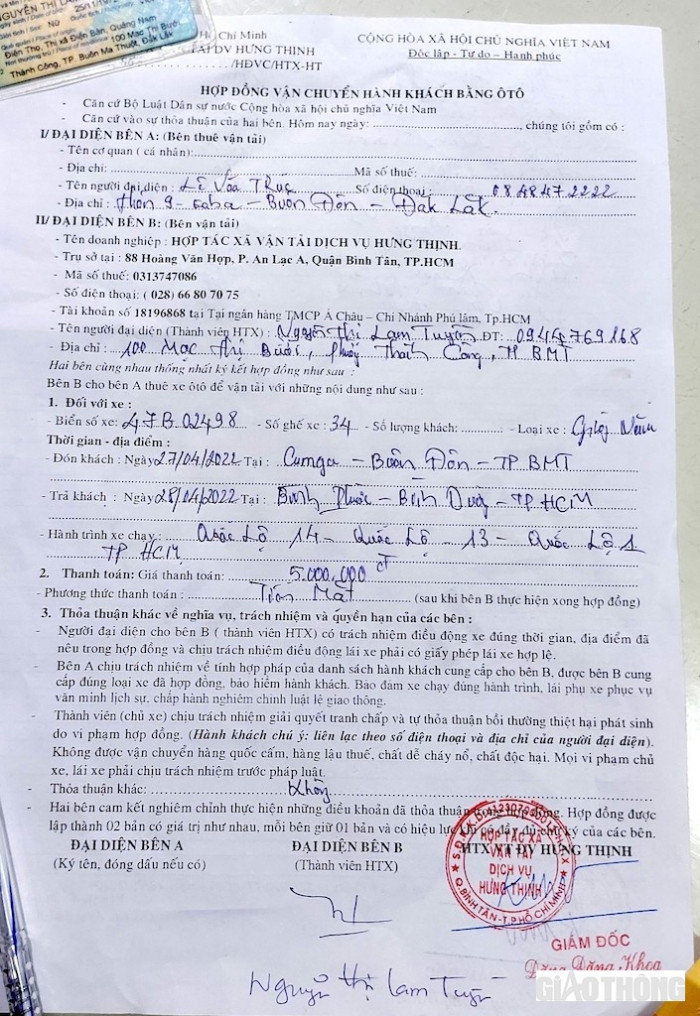 NGUYỄN THỊ LA
Điện Thọ, Thị xã Điện Bàn, Quảng Nam
100 Mạc Thị Bưởi
Thành Công, TP. Buôn Ma Thuột, Đắk Lắk
Chí Minh
TẢI DV HƯNG THỊNH
/HĐVC/HTX-HT
CỘNG HÒA XÃ HỘI CHỦ NGHĨA VIỆT NAM
Độc lập - Tự do – Hạnh phúc
HỢP ĐỒNG VẬN CHUYỂN HÀNH KHÁCH BẰNG ÔTÔ
- Căn cứ Bộ Luật Dân sự nước Cộng hòa xã hội chủ nghĩa Việt Nam
- Căn cứ vào sự thỏa thuận của hai bên. Hôm nay ngày: ........, chúng tôi gồm có :
I/ ĐẠI DIỆN BÊN A: (Bên thuê vận tải)
- Tên cơ quan ( cá nhân):........
- Địa chỉ: ........ Mã số thuế: ........
- Tên người đại diện : Lê Văn Thức Số điện thoại : 0848472222
- Địa chỉ : thôn 9 - eaba - Buôn Đôn - Đak Lăk.
II/ ĐẠI DIỆN BÊN B: (Bên vận tải)
- Tên doanh nghiệp : HỢP TÁC XÃ VẬN TẢI DỊCH VỤ HƯNG THỊNH.
- Trụ sở tại : 88 Hoàng Văn Hợp, P. An Lạc A, Quận Bình Tân, TP.HCM
- Mã số thuế: 0313747086
- Số điện thoại: ( 028) 66 80 70 75
- Tài khoản số 18196868 tại Tại ngân hàng TMCP Á Châu – Chi Nhánh Phú lâm, Tp.HCM
- Tên người đại diện (Thành viên HTX) : Nguyễn Thị Lam Tuyền ĐT: 0944769168
- Địa chỉ : 100 Mạc Thị Bưởi, Phường Thành Công, TP BMT
Hai bên cùng nhau thống nhất ký kết hợp đồng như sau :
Bên B cho bên A thuê xe ôtô để vận tải với những nội dung như sau :
1. Đối với xe :
- Biển số xe: 47B 02498 - Số ghế xe : 34 - Số lượng khách: ........ - Loại xe : Giường Nằm
Thời gian - địa điểm :
- Đón khách : Ngày 27/04/2022 Tại : Cumga - Buôn Đôn - TP BMT
- Trả khách : Ngày 28/04/2022 Tại : Bình Phước - Bình Dương - TP HCM
- Hành trình xe chạy : Quốc Lộ 14 - Quốc Lộ - 13 - Quốc Lộ 1
TP HCM
2. Thanh toán: Giá thanh toán: 5.000.000 đ
- Phương thức thanh toán : Tiền Mặt (sau khi bên B thực hiện xong hợp đồng)
3. Thỏa thuận khác về nghĩa vụ, trách nhiệm và quyền hạn của các bên :
- Người đại diện cho bên B ( thành viên HTX) có trách nhiệm điều động xe đúng thời gian, địa điểm đã
nêu trong hợp đồng và chịu trách nhiệm điều động lái xe phải có giấy phép lái xe hợp lệ.
- Bên A chịu trách nhiệm về tính hợp pháp của danh sách hành khách cung cấp cho bên B, được bên B cung
cấp đúng loại xe đã hợp đồng, bảo hiểm hành khách. Bảo đảm xe chạy đúng hành trình, lái phụ xe phục vụ
văn minh lịch sự, chấp hành nghiêm chỉnh luật lệ giao thông.
- Thành viên (chủ xe) chịu trách nhiệm giải quyết tranh chấp và tự thỏa thuận bồi thường thiệt hại phát sinh
do vi phạm hợp đồng. (Hành khách chú ý: liên lạc theo số điện thoại và địa chỉ của người đại diện).
Không được vận chuyển hàng quốc cấm, hàng lậu thuế, chất dễ cháy nổ, chất độc hại. Mọi vi phạm chủ
xe, lái xe phải chịu trách nhiệm trước pháp luật.
- Thỏa thuận khác: Không
- Hai bên cam kết nghiêm chỉnh thực hiện những điều khoản đã thỏa thuận trong hợp đồng. Hợp đồng được
lập thành 02 bản có giá trị như nhau, mỗi bên giữ 01 bản và có hiệu lực khi có đầy đủ chữ ký của các bên.
ĐẠI DIỆN BÊN A ĐẠI DIỆN BÊN B HTX VT DV HƯNG THỊNH
(Ký tên, đóng dấu nếu có) (Thành viên HTX)
HỢP TÁC XÃ
VẬN TẢI
DỊCH VỤ
HƯNG THỊNH
Q.BÌNH TÂN-T.PHỐ HỒ CHÍ MINH
GIÁM ĐỐC
Đặng Đăng Khoa
Nguyễn Thị Lam Tuyền
GIAOTHÔNG